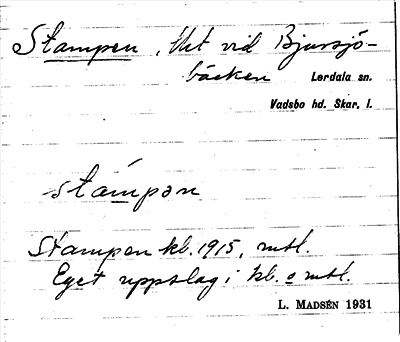 Stampen, Ht vid Bjursjö-
bäcken Lerdala sn.
Vadsbo hd. Skar. l.
stámpən
Stampen kb. 1915, mtl.
Eget uppslag i kb. o mtl.
L. MADSÉN 1931